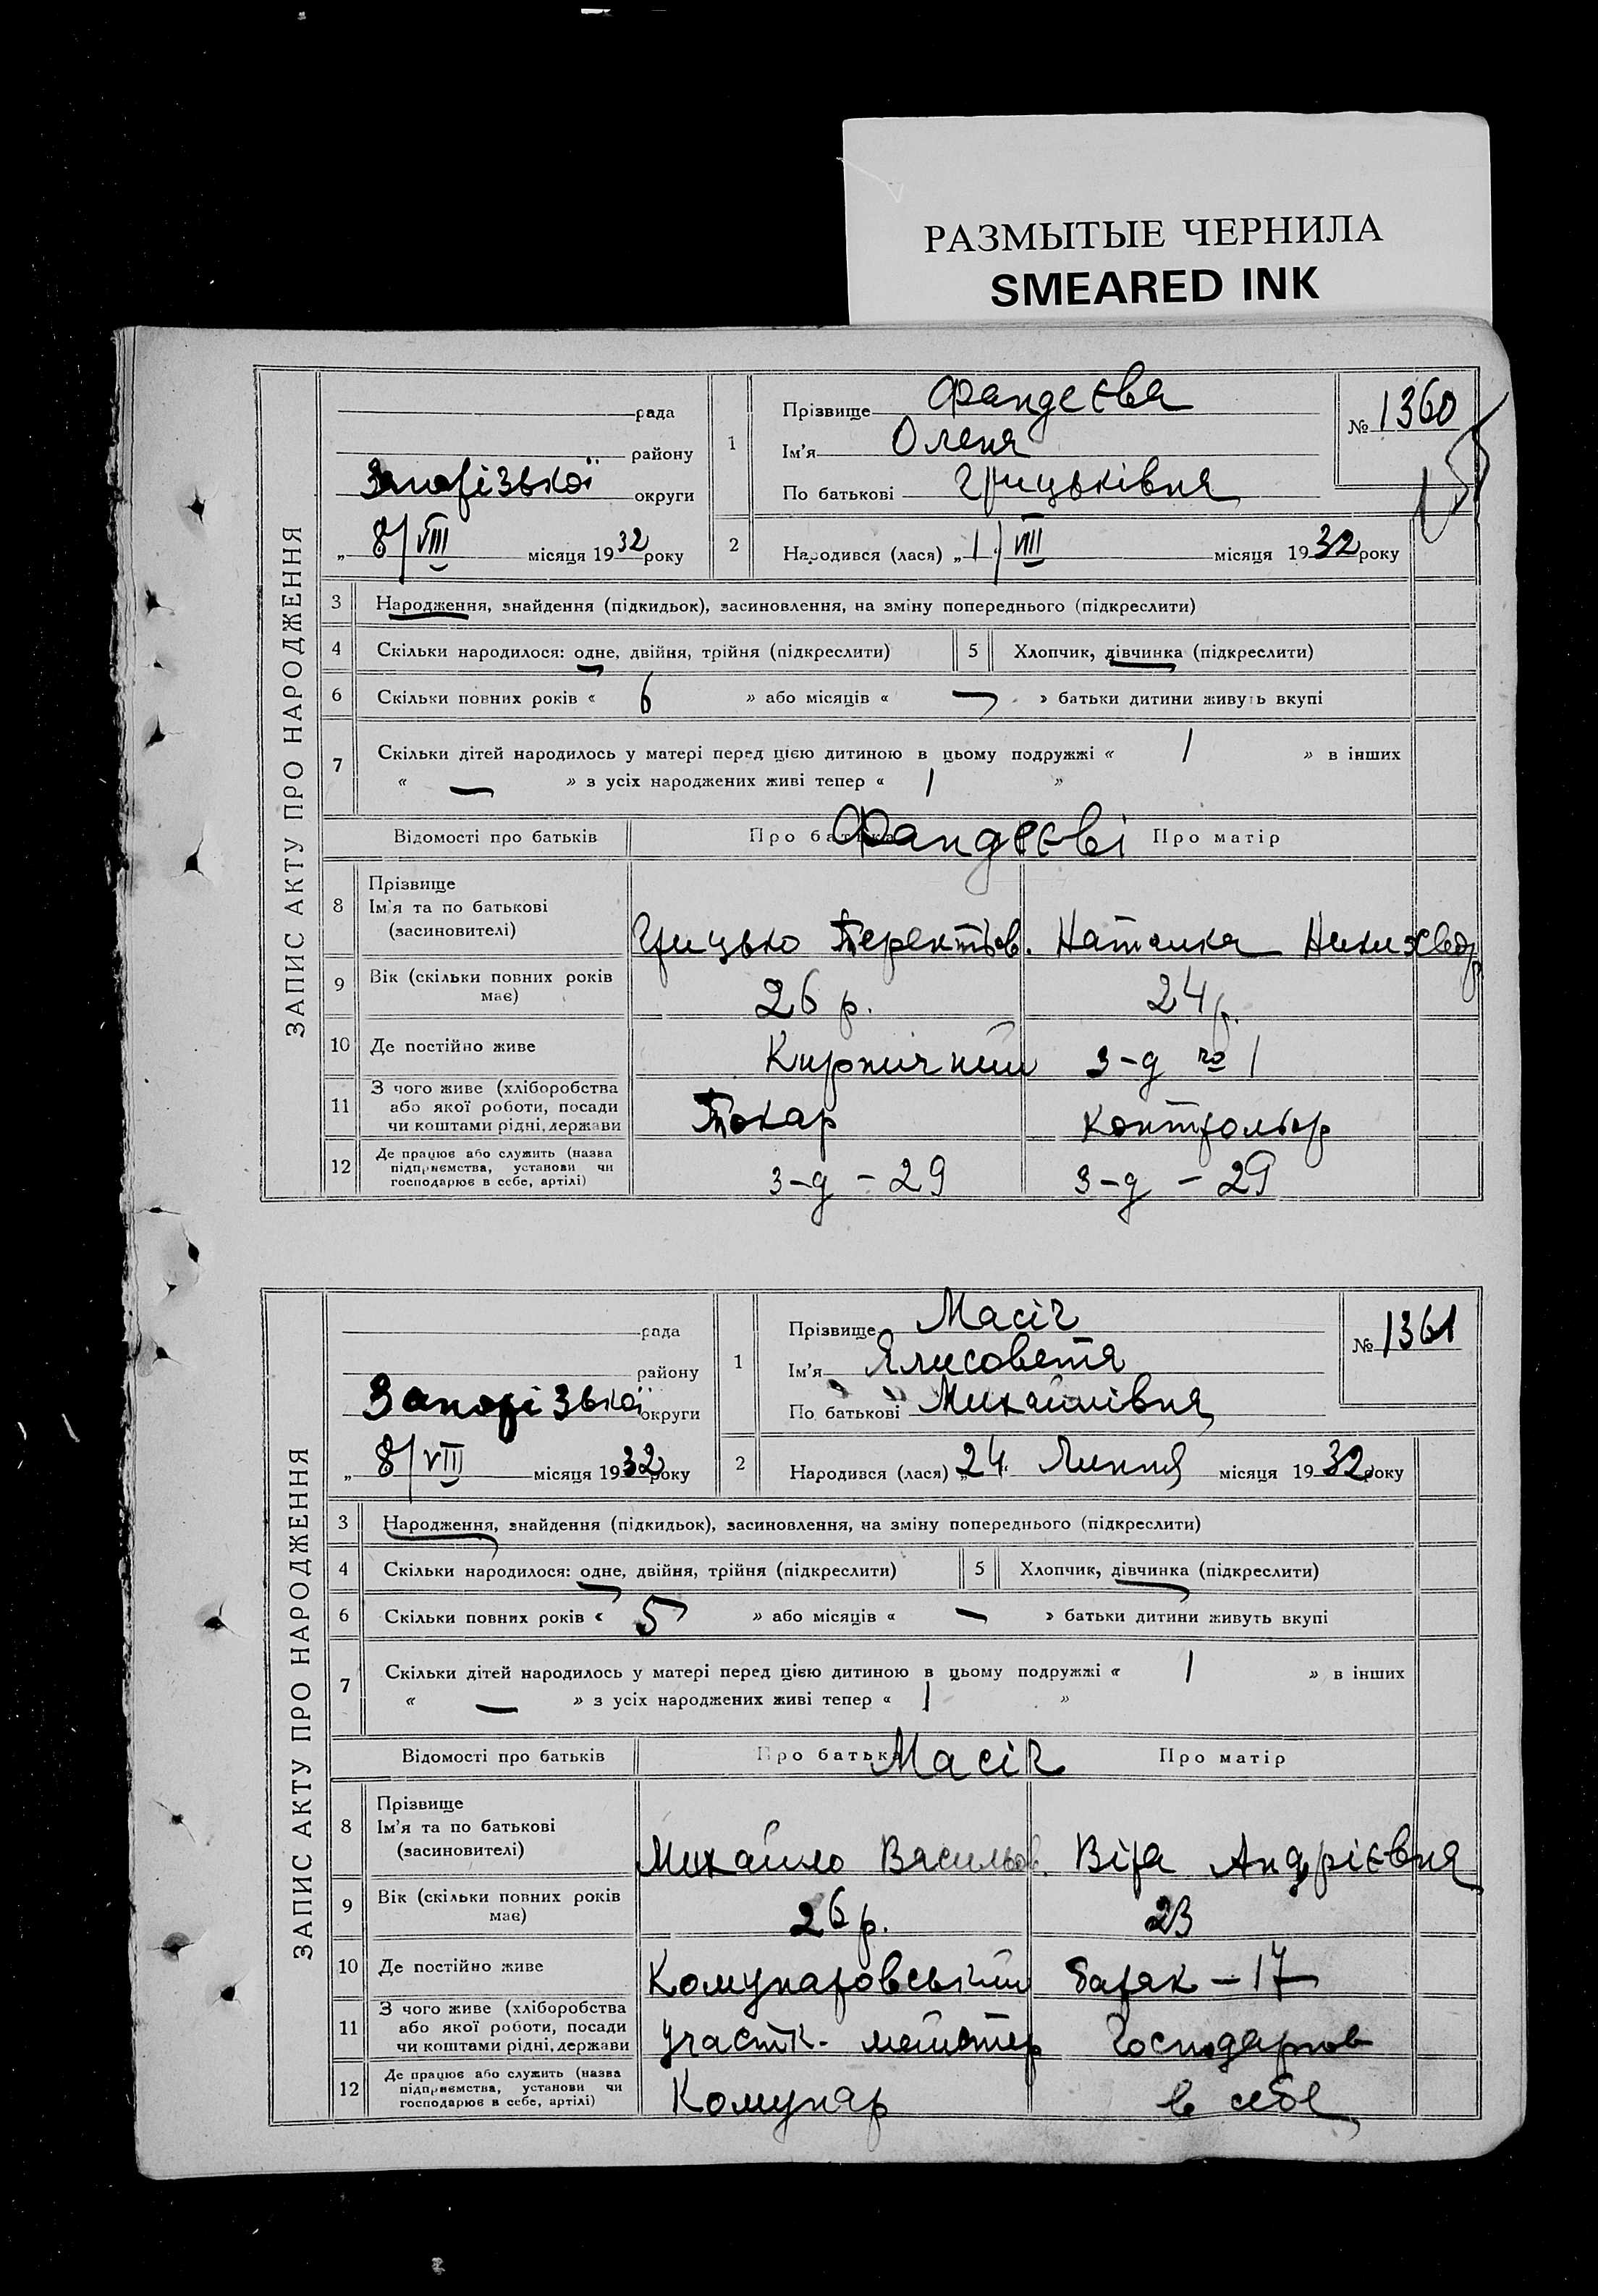 РАЗМЫТЫЕ ЧЕРНИЛА
SMEARED INK
ЗАПИС АКТУ ПРО НАРОДЖЕННЯ
рада
району
Запорізької округи
„ 8/VIII місяця 1932 року
1
Прізвище Фандеєва
Ім'я Олена
По батькові Грицьківна
№ 1360
2
Народився (лася) „ 1/VIII місяця 1932 року
3 Народження, знайдення (підкидьок), засиновлення, на зміну попереднього (підкреслити)
4 Скільки народилося: одне, двійня, трійня (підкреслити) 5 Хлопчик, дівчинка (підкреслити)
6 Скільки повних років « 6 » або місяців « — » батьки дитини живуть вкупі
7 Скільки дітей народилось у матері перед цією дитиною в цьому подружжі « 1 » в інших
« — » з усіх народжених живі тепер « 1 »
Відомості про батьків Про батька Фандеєві Про матір
8 Прізвище
Ім'я та по батькові
(засиновителі)
Грицько Наталка
9 Вік (скільки повних років
має)
26 р. 24 р.
10 Де постійно живе Кирпичний з-д № 1
11 З чого живе (хліборобства
або якої роботи, посади
чи коштами рідні, держави
Токар Контрольор
12 Де працює або служить (назва
підприємства, установи чи
господарює в себе, артілі)
з-д - 29 з-д - 29
ЗАПИС АКТУ ПРО НАРОДЖЕННЯ
рада
району
Запорізької округи
„ 8/VIII місяця 1932 року
1
Прізвище Масіч
Ім'я Ялисовета
По батькові Михайлівна
№ 1361
2
Народився (лася) „ 24 " Липня місяця 1932 року
3 Народження, знайдення (підкидьок), засиновлення, на зміну попереднього (підкреслити)
4 Скільки народилося: одне, двійня, трійня (підкреслити) 5 Хлопчик, дівчинка (підкреслити)
6 Скільки повних років « 5 » або місяців « — » батьки дитини живуть вкупі
7 Скільки дітей народилось у матері перед цією дитиною в цьому подружжі « 1 » в інших
« — » з усіх народжених живі тепер « 1 »
Відомості про батьків Про батька Масіч Про матір
8 Прізвище
Ім'я та по батькові
(засиновителі)
Михайло Васильов. Віра Андрієвна
9 Вік (скільки повних років
має)
26 р. 23
10 Де постійно живе Комунаровський барак - 17
11 З чого живе (хліборобства
або якої роботи, посади
чи коштами рідні, держави
участк. майстер Господарює
12 Де працює або служить (назва
підприємства, установи чи
господарює в себе, артілі)
Комунар в себе